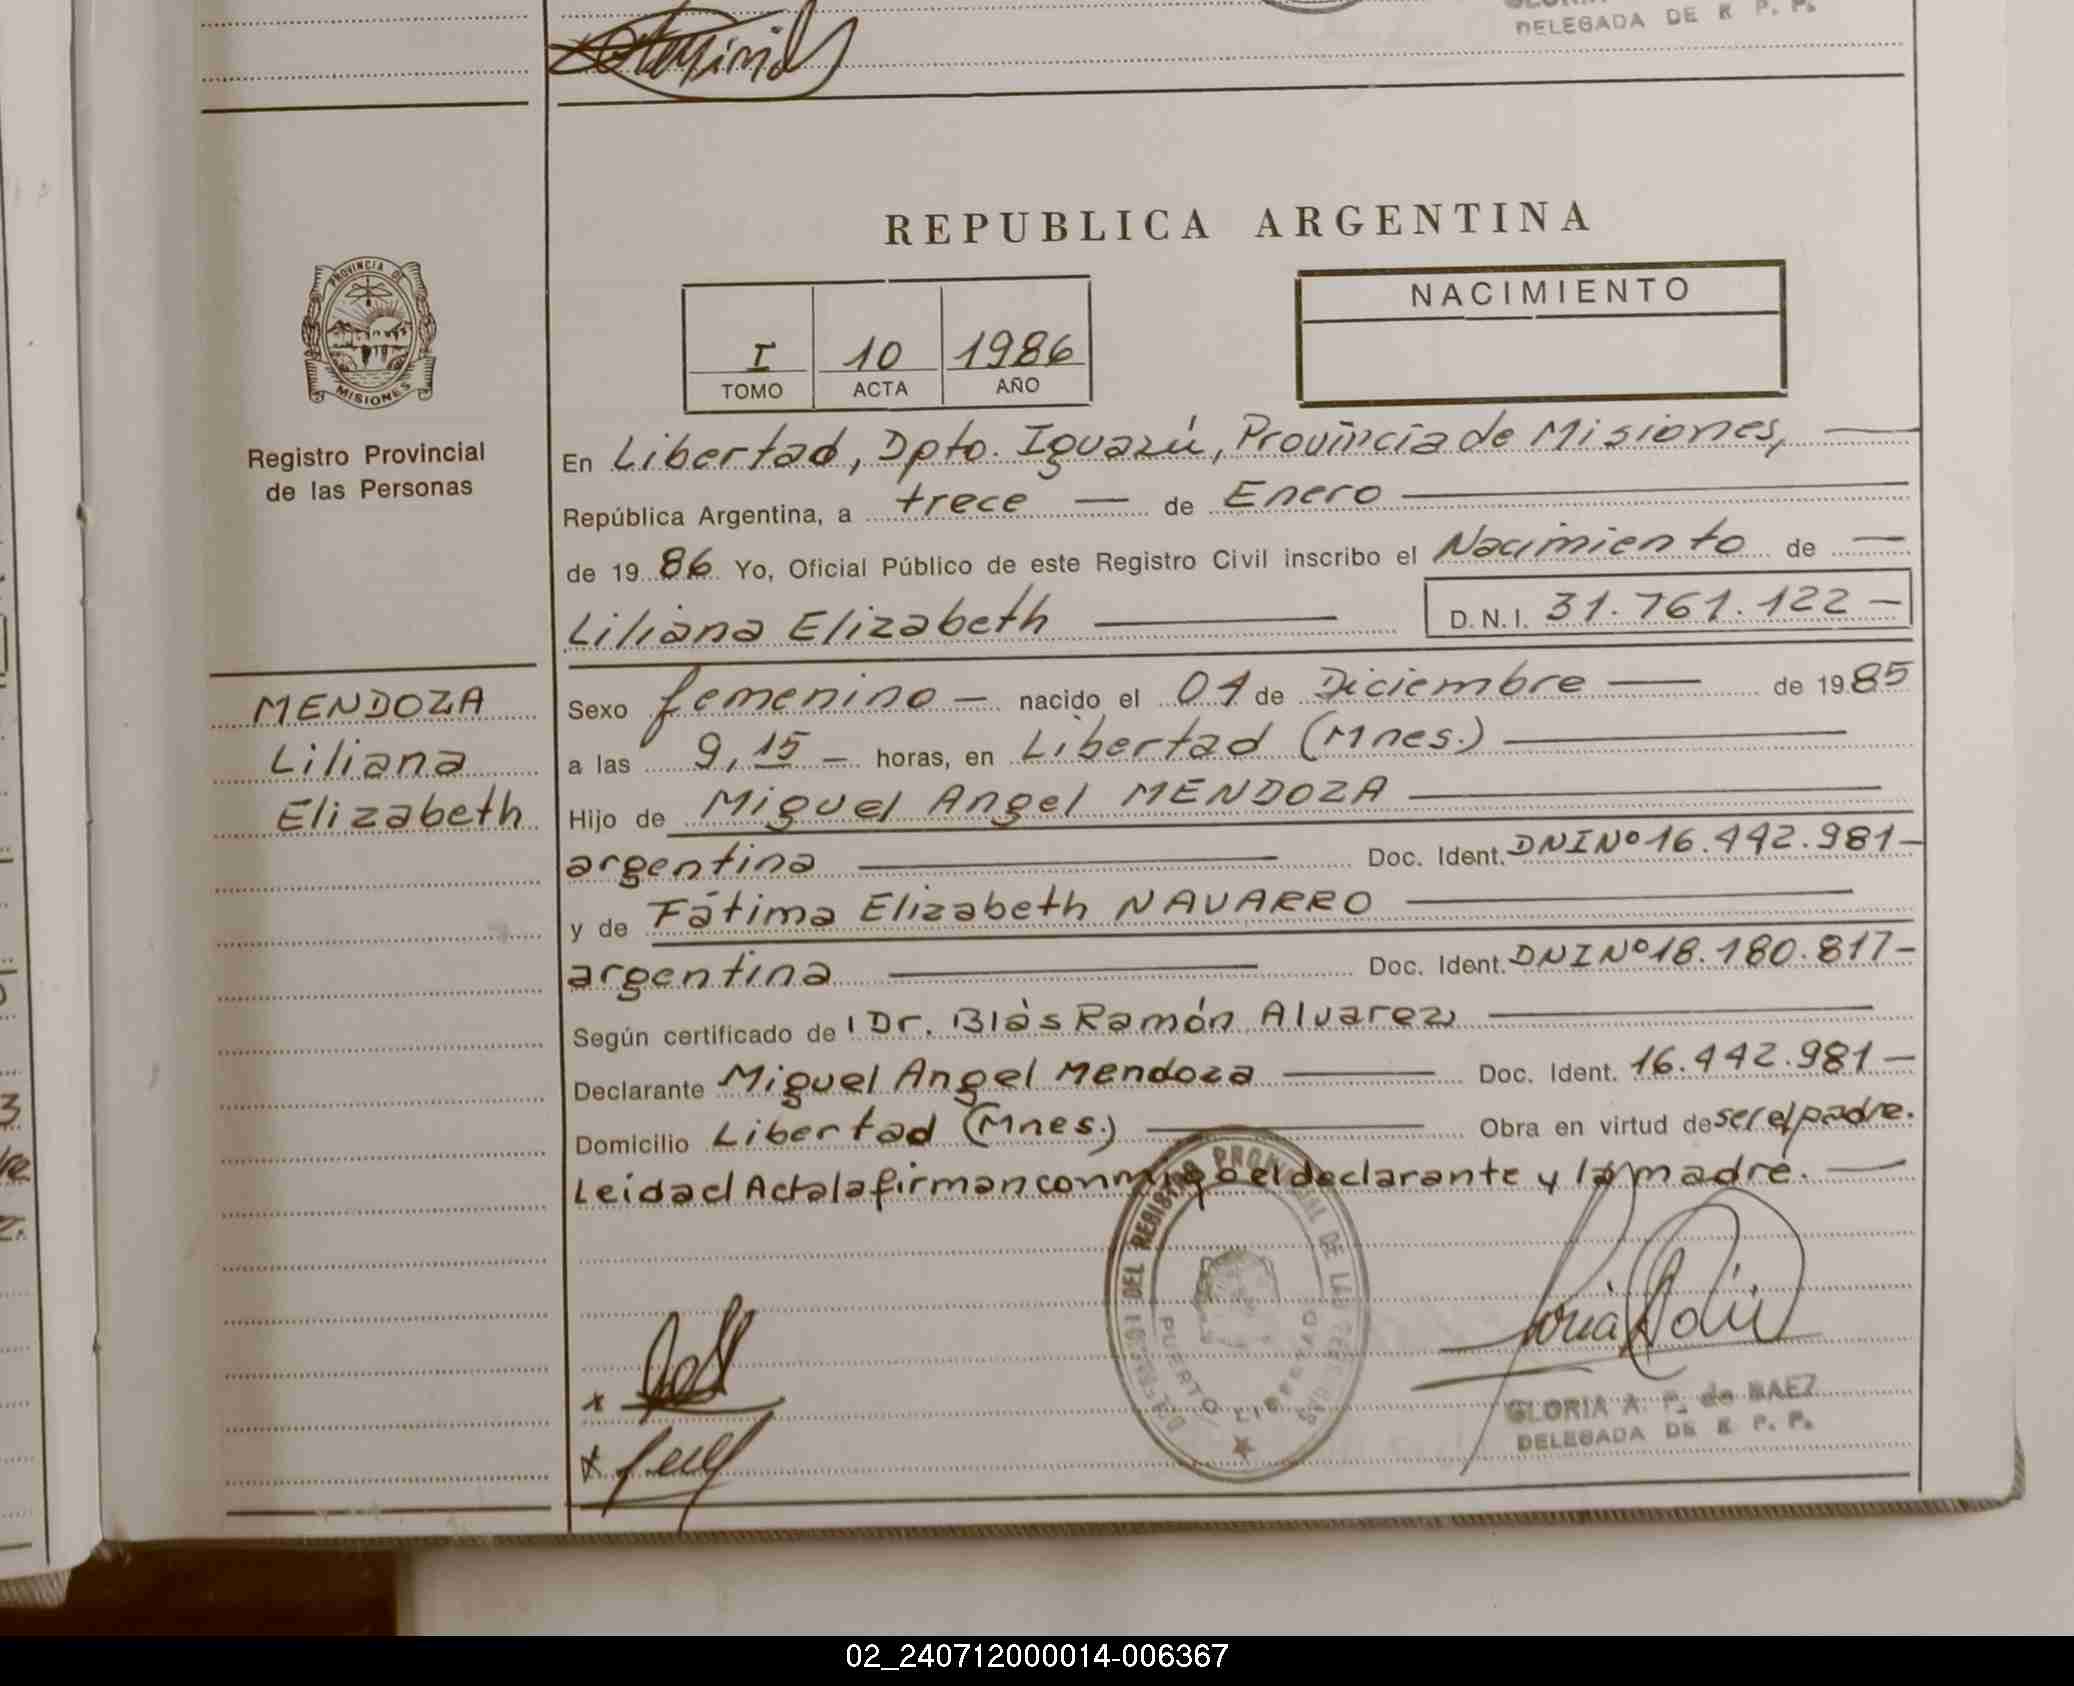 DELEGADA DE R P. P.
REPUBLICA ARGENTINA
PROVINCIA DE
MISIONES
Registro Provincial
de las Personas
I 10 1986
TOMO ACTA AÑO
NACIMIENTO
En Libertad, Dpto. Iguazú, Provincia de Misiones,
República Argentina, a trece de Enero
de 1986 Yo, Oficial Público de este Registro Civil inscribo el Nacimiento de
Liliana Elizabeth D.N.I. 31.761.122
MENDOZA
Liliana
Elizabeth
Sexo femenino nacido el 01 de Diciembre de 1985
a las 9,15 horas, en Libertad (Mnes.)
Hijo de Miguel Angel MENDOZA
argentina Doc. Ident. DNI Nº 16.442.981
y de Fátima Elizabeth NAVARRO
argentina Doc. Ident. DNI Nº 18.180.817
Según certificado de Dr. Blás Ramón Alvarez
Declarante Miguel Angel Mendoza Doc. Ident. 16.442.981
Domicilio Libertad (Mnes.) Obra en virtud de ser el padre.
Leída el Acta la firman conmigo el declarante y la madre.
DEL REGISTRO PROVINCIAL DE LAS PERSONAS
PUERTO LIBERTAD
GLORIA A. P. de BAEZ
DELEGADA DE R P. P.
02_240712000014-006367